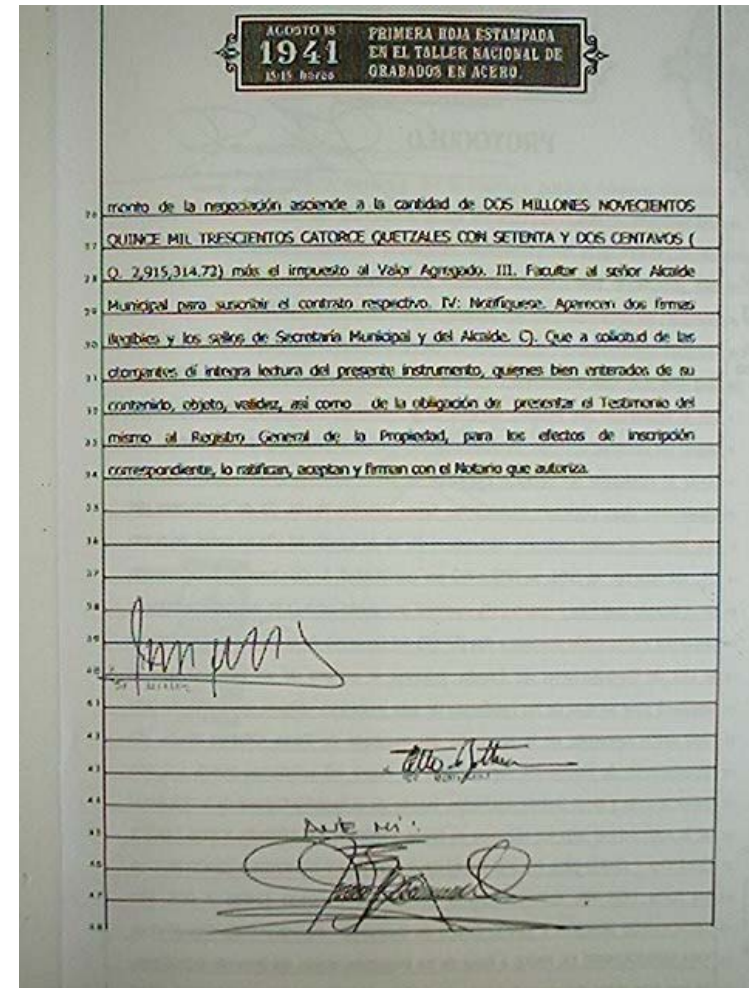 AGOSTO 18
1941
15:15 horas
PRIMERA HOJA ESTAMPADA
EN EL TALLER NACIONAL DE
GRABADOS EN ACERO.
PROTOCOLO
26 monto de la negociación asciende a la cantidad de DOS MILLONES NOVECIENTOS
27 QUINCE MIL TRESCIENTOS CATORCE QUETZALES CON SETENTA Y DOS CENTAVOS (
28 Q. 2,915,314.72) más el impuesto al Valor Agregado. III. Facultar al señor Alcalde
29 Municipal para suscribir el contrato respectivo. IV: Notifíquese. Aparecen dos firmas
30 ilegibles y los sellos de Secretaría Municipal y del Alcalde. C). Que a solicitud de las
31 otorgantes dí integra lectura del presente instrumento, quienes bien enterados de su
32 contenido, objeto, validez, así como de la obligación de presentar el Testimonio del
33 mismo al Registro General de la Propiedad, para los efectos de inscripción
34 correspondiente, lo ratifican, aceptan y firman con el Notario que autoriza.
35
36
37
38
39
40
41
42
43
44
45 ANTE MÍ:
46
47
48